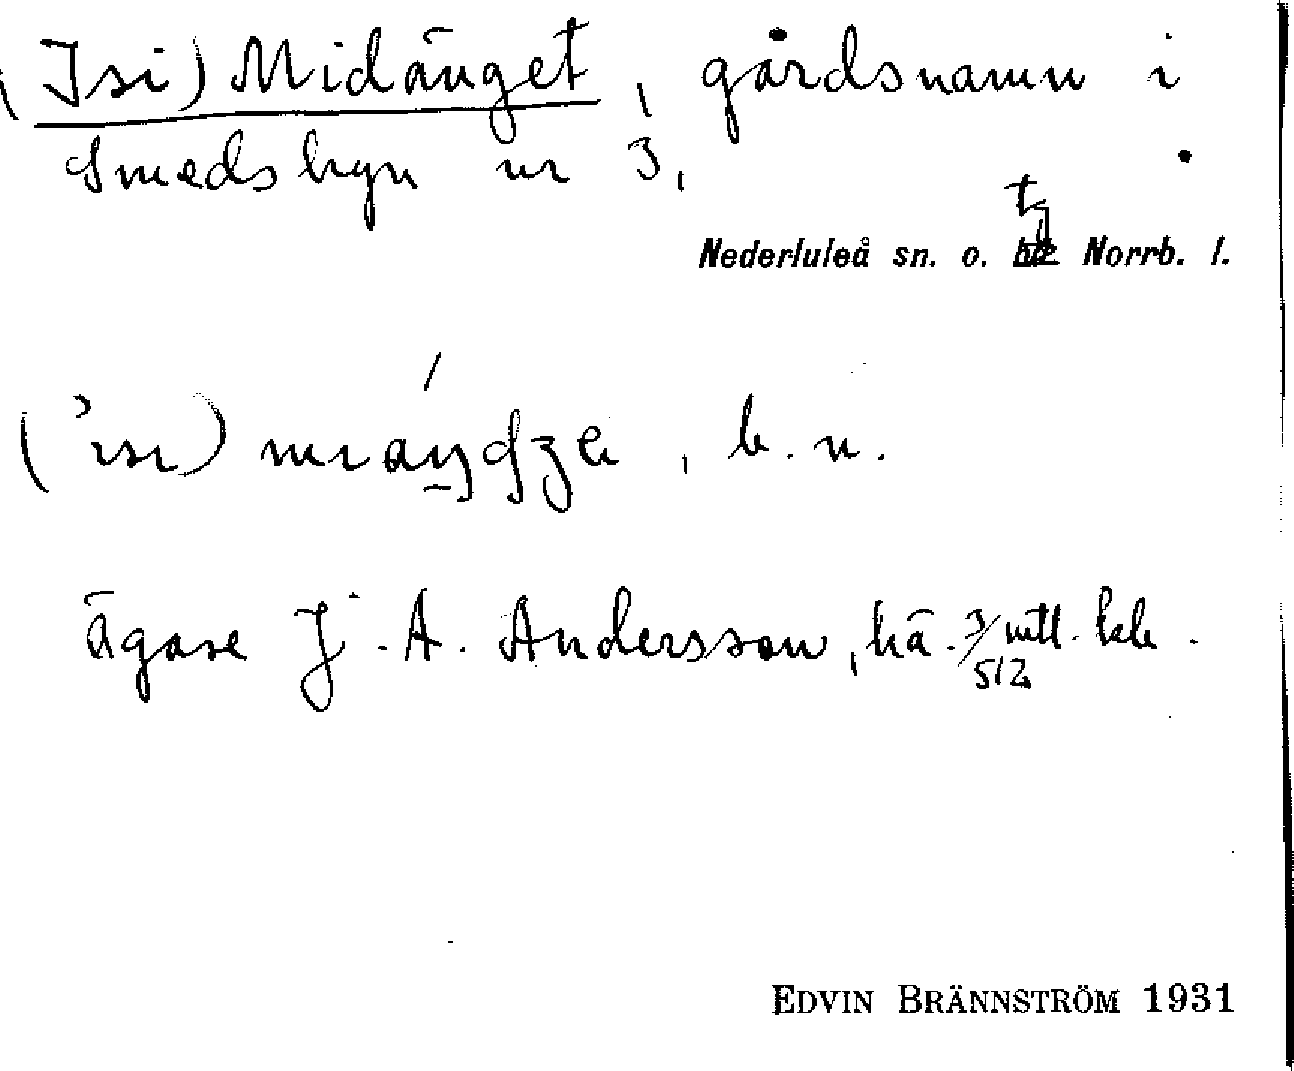 (Isi) Midänget, gårdsnamn i
Smedsbyn nr 3,
Nederluleå sn. o. tg Norrb. l.
b. n.
ägare J. A. Andersson, hä. 3/512 mtl.
EDVIN BRÄNNSTRÖM 1931